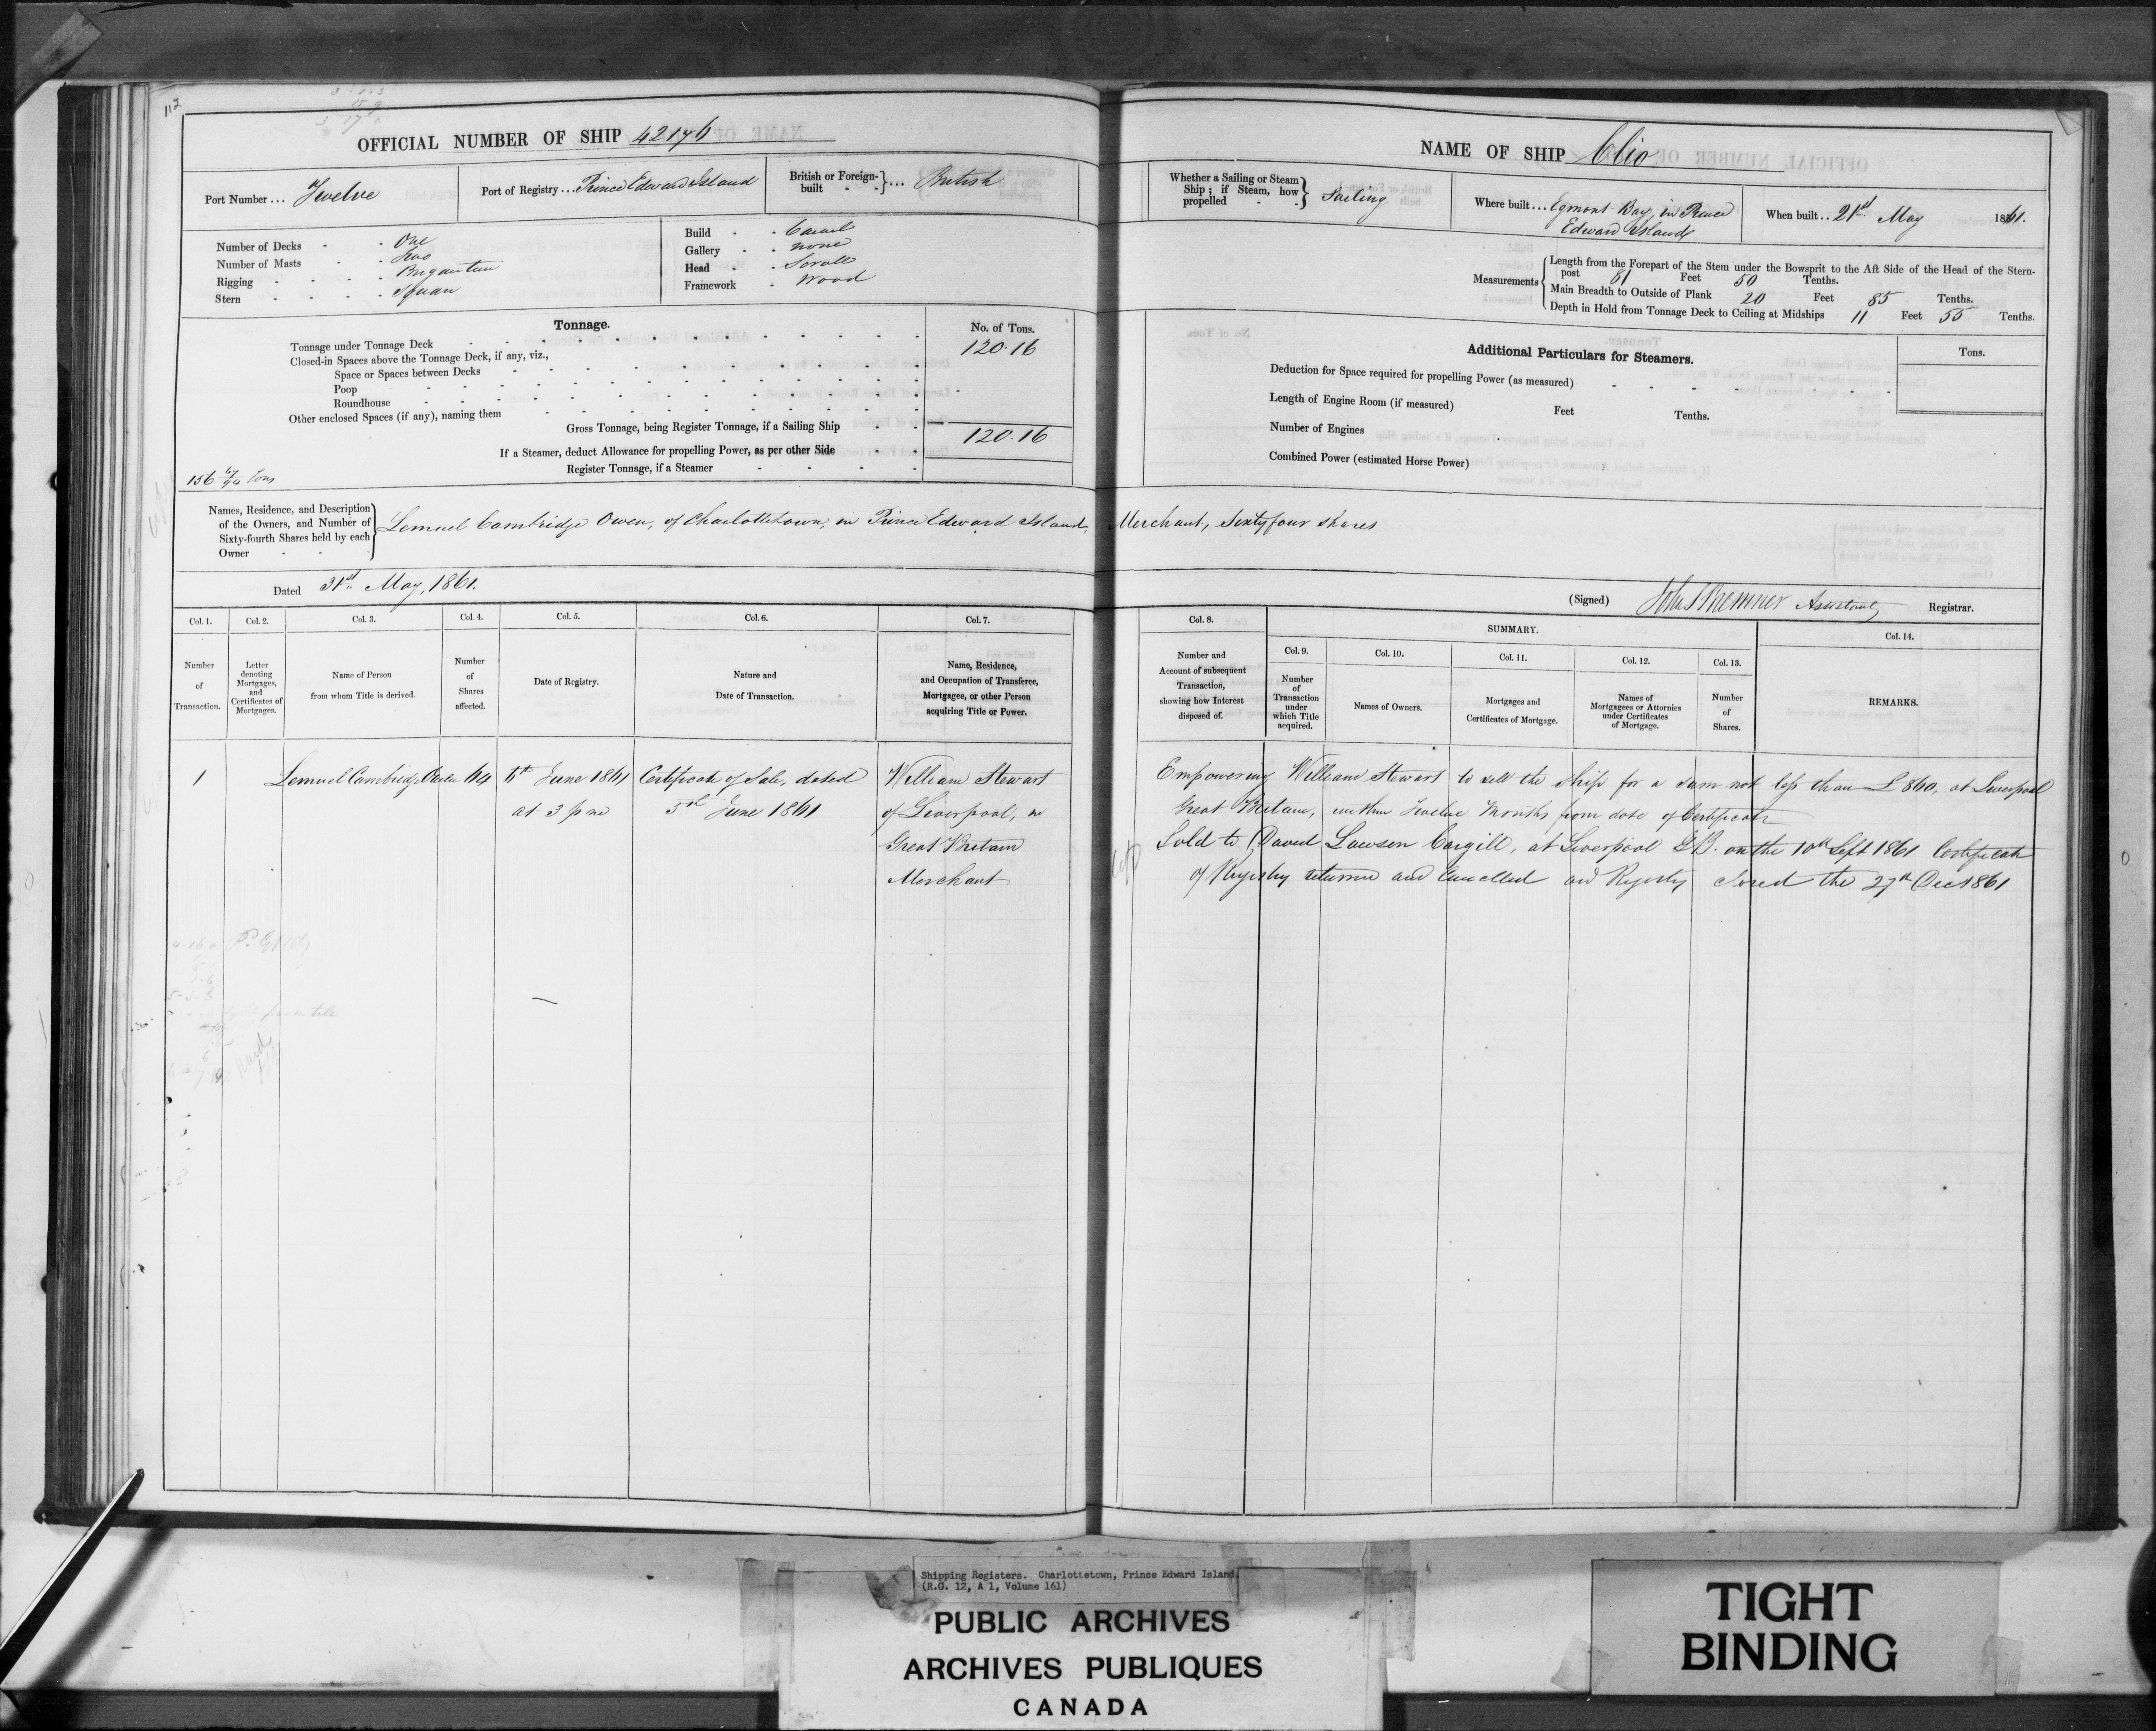 112
OFFICIAL NUMBER OF SHIP 42176
Port Number ... Twelve
Port of Registry ... Prince Edward Island
British or Foreign-built - - } ... British
Number of Decks - - One
Number of Masts - - Two
Rigging - - - - Brigantine
Stern - - - - Square
Build - - Carvel
Gallery - - None
Head - - Scroll
Framework - Wood
Tonnage.
No. of Tons.
Tonnage under Tonnage Deck 120.16
Closed-in Spaces above the Tonnage Deck, if any, viz.,
Space or Spaces between Decks
Poop
Roundhouse
Other enclosed Spaces (if any), naming them
Gross Tonnage, being Register Tonnage, if a Sailing Ship 120.16
If a Steamer, deduct Allowance for propelling Power, as per other Side
Register Tonnage, if a Steamer
156 67/94 Tons
NAME OF SHIP Clio
Whether a Sailing or Steam Ship; if Steam, how propelled - - } Sailing
Where built ... Egmont Bay, in Prince
Edward Island
When built .. 21st May 1861.
Measurements
Length from the Forepart of the Stem under the Bowsprit to the Aft Side of the Head of the Stern-
post 81 Feet 50 Tenths.
Main Breadth to Outside of Plank 20 Feet 85 Tenths.
Depth in Hold from Tonnage Deck to Ceiling at Midships 11 Feet 55 Tenths.
Additional Particulars for Steamers.
Tons.
Deduction for Space required for propelling Power (as measured)
Length of Engine Room (if measured) Feet Tenths.
Number of Engines
Combined Power (estimated Horse Power)
Names, Residence, and Description
of the Owners, and Number of
Sixty-fourth Shares held by each
Owner - -
Lemuel Cambridge Owen, of Charlottetown, in Prince Edward Island, Merchant, Sixty four shares
Dated 31st May, 1861.
(Signed) John S Bremner Assistant Registrar.
Col. 1. Col. 2. Col. 3. Col. 4. Col. 5. Col. 6. Col. 7.
Number of Transaction.
Letter denoting Mortgages, and Certificates of Mortgages.
Name of Person from whom Title is derived.
Number of Shares affected.
Date of Registry.
Nature and Date of Transaction.
Name, Residence, and Occupation of Transferee, Mortgagee, or other Person acquiring Title or Power.
Col. 8. SUMMARY. Col. 14.
Col. 9. Col. 10. Col. 11. Col. 12. Col. 13.
Number and Account of subsequent Transaction, showing how Interest disposed of.
Number of Transaction under which Title acquired.
Names of Owners.
Mortgages and Certificates of Mortgage.
Names of Mortgagees or Attornies under Certificates of Mortgage.
Number of Shares.
REMARKS.
1 Lemuel Cambridge Owen 64 6th June 1861 Certificate of Sale, dated William Stewart
at 3 p m 5th June 1861 of Liverpool, in
Great Britain
Merchant
Empowering William Stewart to sell the ship for a sum not less than £860, at Liverpool
Great Britain, within Twelve Months from date of Certificate
Sold to David Lawson Cargill, at Liverpool G.B. on the 10th Sept 1861 Certificate
of Registry returned and Cancelled and Registry closed the 27th Dec 1861
Shipping Registers. Charlottetown, Prince Edward Island.
(R.G. 12, A 1, Volume 161)
PUBLIC ARCHIVES
ARCHIVES PUBLIQUES
CANADA
TIGHT
BINDING